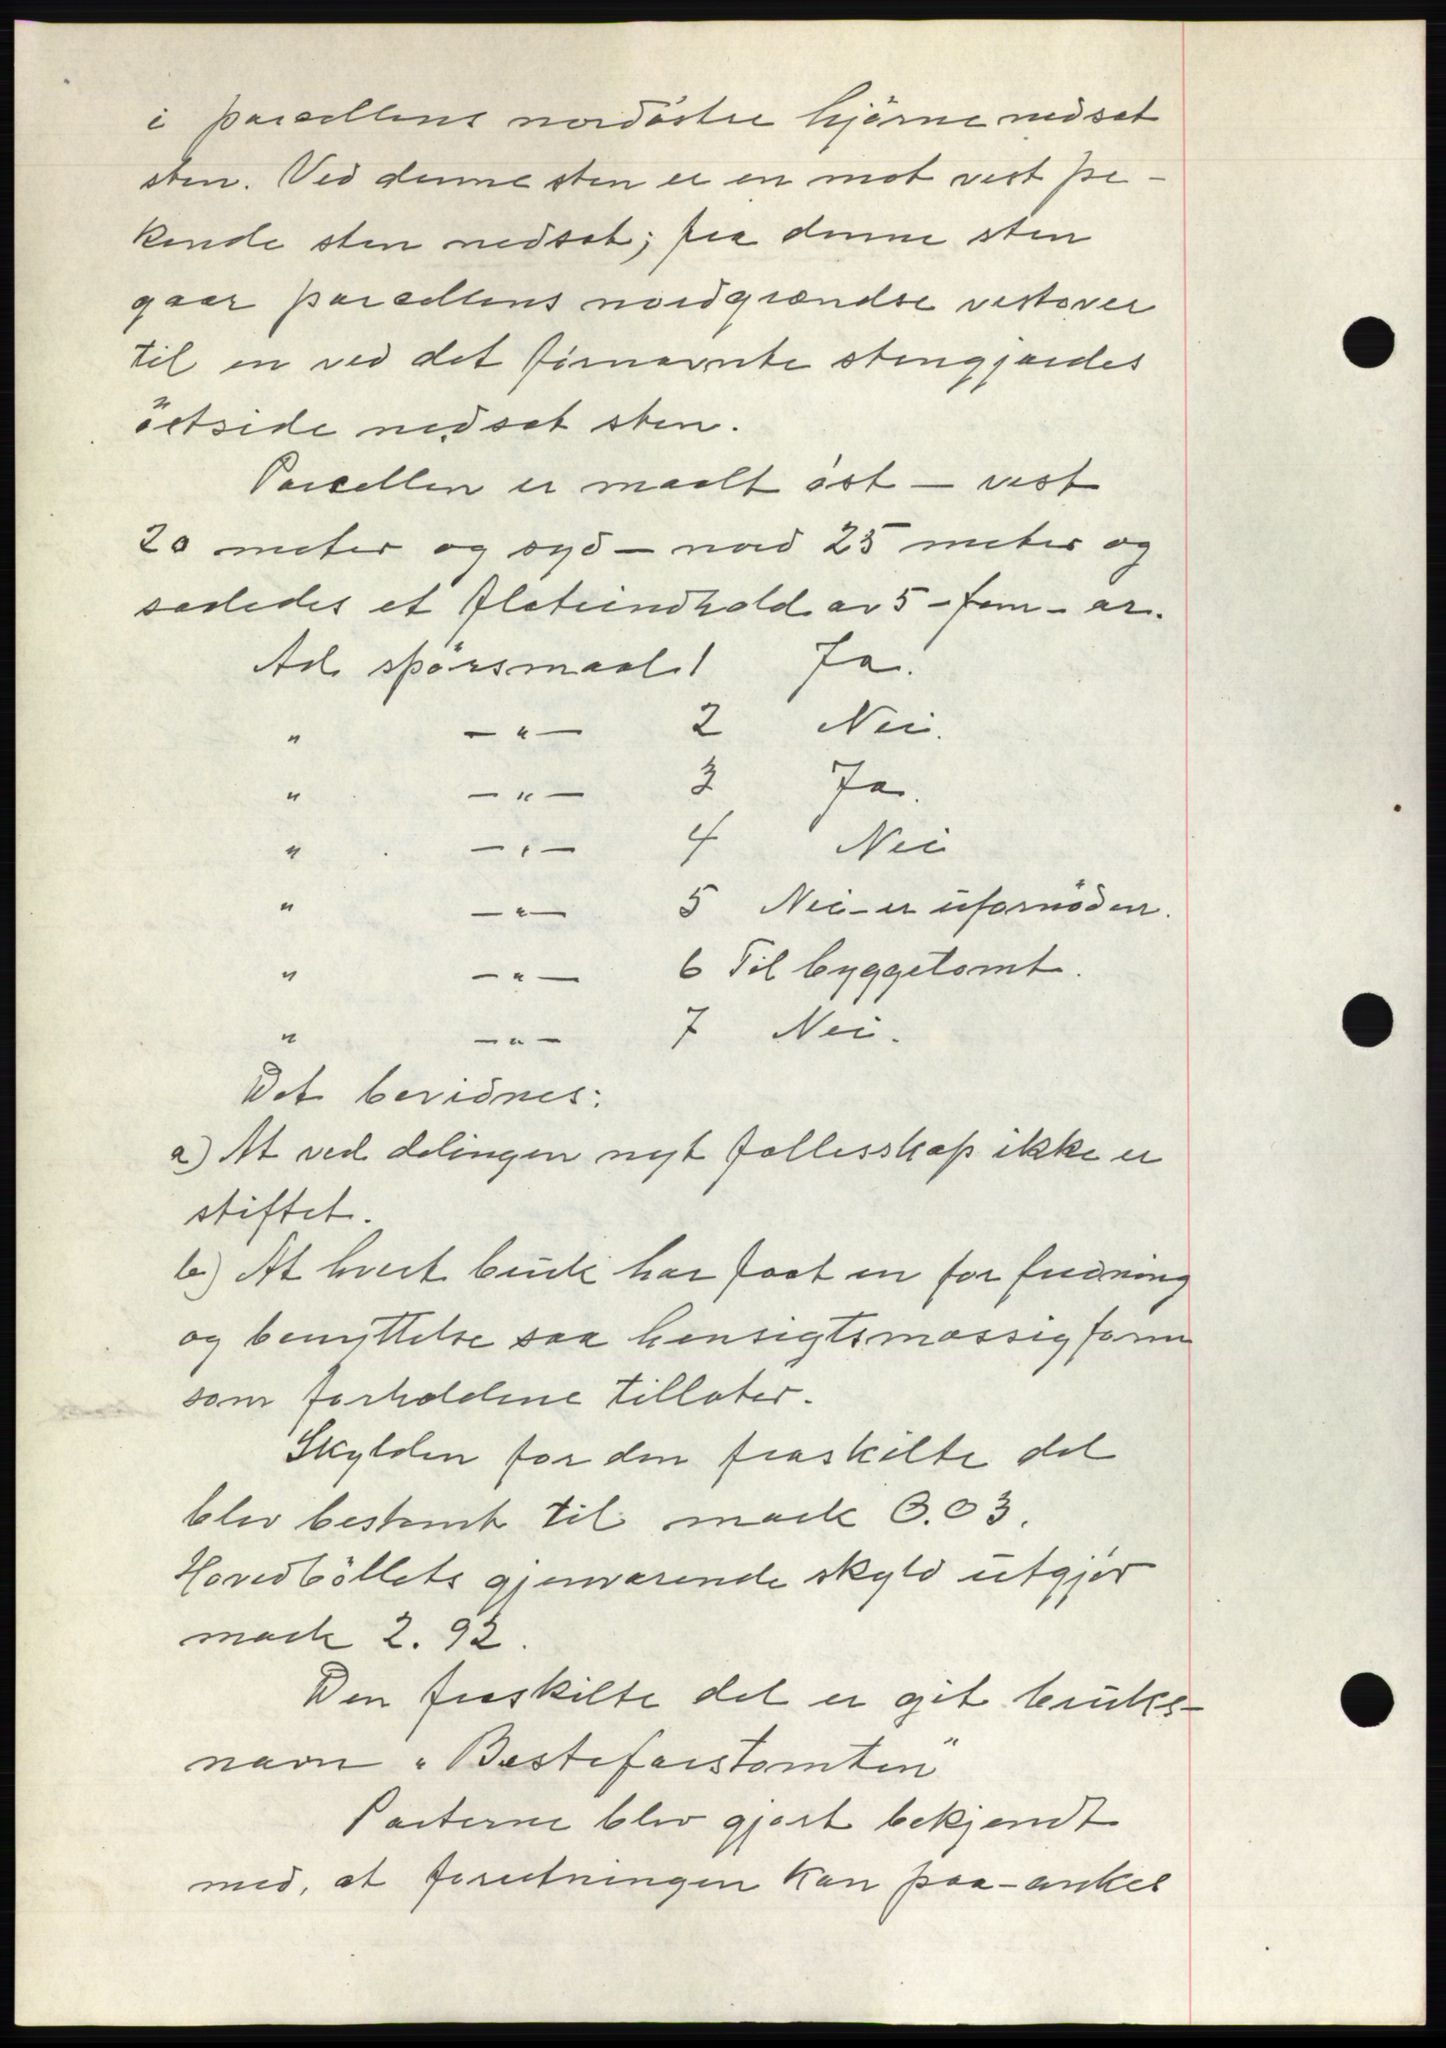 i parcellens nordöstre hjörne nedsat
sten. Ved denne sten er en mot vest pe-
kende sten nedsat; fra denne sten
gaar parcellens nordgrændse vestover
til en ved det førnævnte stengjærdes
östside nedsat sten.
Parcellen er maalt öst - vest
20 meter og syd - nord 25 meter og
saaledes et flateindhold av 5 - fem - ar.
Ad spörsmaal 1 Ja.
" - " - 2 Nei.
" - " - 3 Ja.
" - " - 4 Nei
" - " - 5 Nei - er ufornöden.
" - " - 6 Til byggetomt.
" - " - 7 Nei.
Det bevidnes:
a) At ved delingen nyt fællesskap ikke er
stiftet.
b) At hvert bruk har faat en for fredning
og benyttelse saa hensigtsmæssig form
som forholdene tillater.
Skylden for den fraskilte del
blev bestemt til mark 0.03.
Hovedbölets gjenværende skyld utgjör
mark 2.92.
Den fraskilte del er git bruks-
navn "Bestefarstomten"
Parterne blev gjort bekjendt
med, at forretningen kan paa-ankes